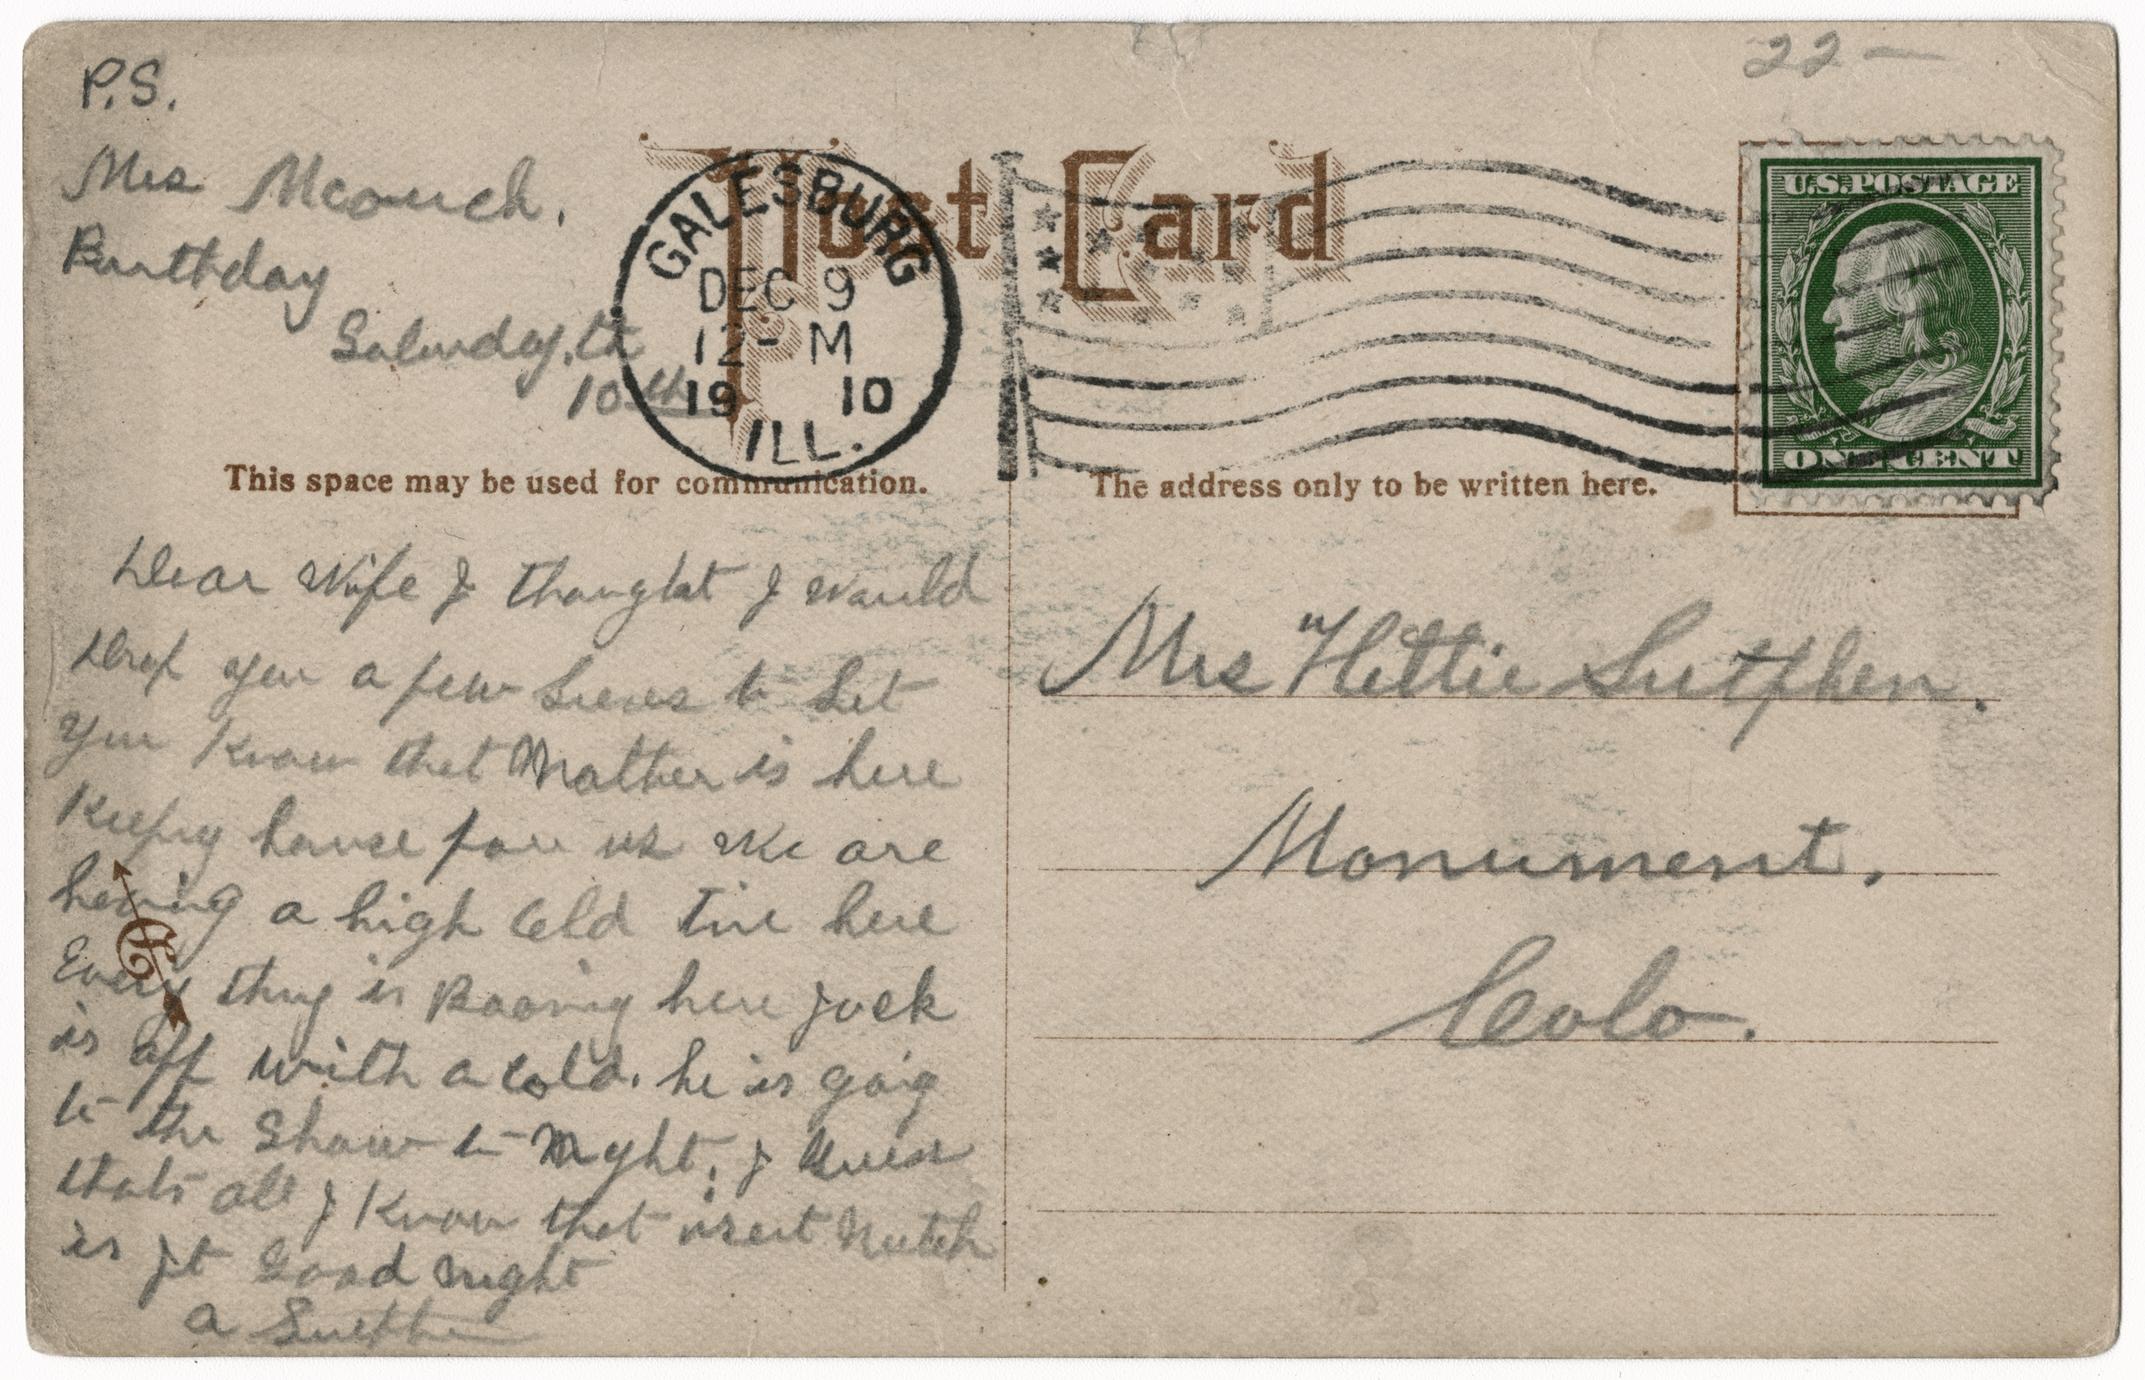 P.S.
22 —
Mrs
Burthday
Saturday, th
10th
Post Card
GALESBURG
DEC 9
12 - M
19 10
ILL.
U.S. POSTAGE
ONE CENT
This space may be used for communication.
The address only to be written here.
Dear Wife I thought I would
Drop you a few Lines to Let
you Know that Mother is here
Keeping house for us We are
having a high Old Time here
Every thing is here Jack
is off with a cold. he is going
to the Show to Night, I Guess
thats all I Know that
is it Good Night
a Sutphen
Mrs "Hettie Sutphen.
Monument.
Colo.